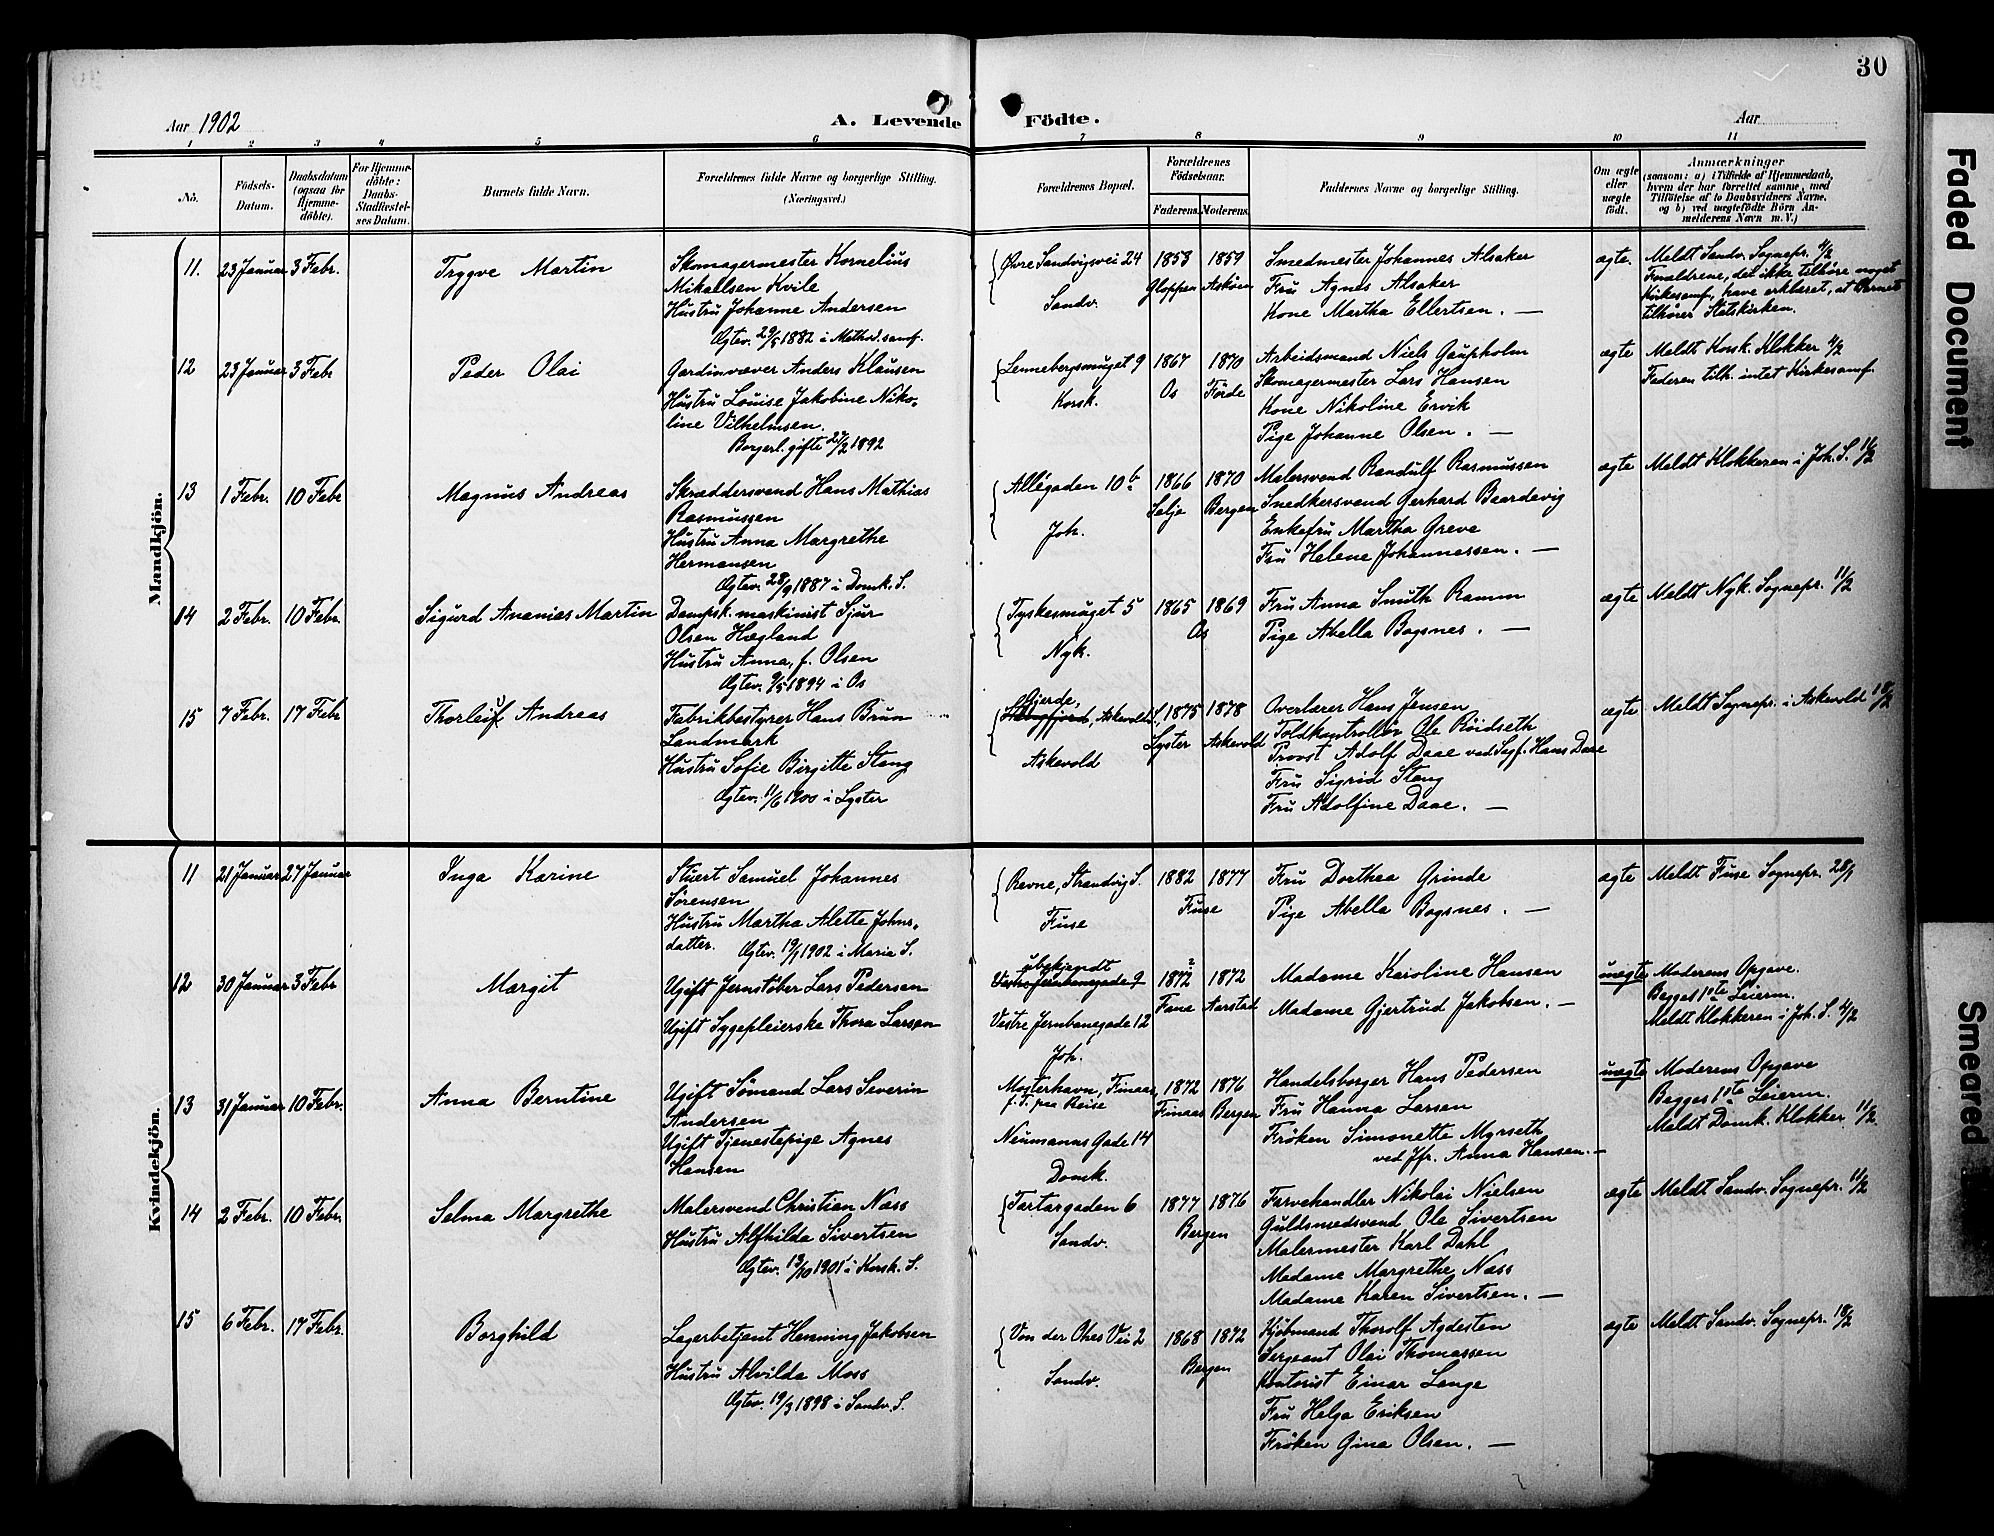 30
Aar 1902
A. Levende Födte.
Aar
1 2 3 4 5 6 7 8 9 10 11
No.
Födsels-Datum.
Daabsdatum (ogsaa for Hjemme-döbte).
For Hjemme-döbte: Daabs-Stadfæstel-ses Datum.
Barnets fulde Navn.
Forældrenes fulde Navne og borgerlige Stilling. (Næringsvei.)
Forældrenes Bopæl.
Forældrenes Födselsaar.
Faderens. Moderens.
Faddernes Navne og borgerlige Stilling.
Om ægte eller uægte födt.
Anmærkninger
(saasom: a) i Tilfælde af Hjemmedaab,
hvem der har forrettet samme, med
Tilföielse af to Daabsvidners Navne,
og b) ved uægtefödte Börn An-
melderens Navn m. V.)
Mandkjön.
11. 23 Januar 3 Febr.
Trygve Martin
Skomagermester Kornelius
Mikaelsen Kvile
Hustru Johanne Andersen
Ægtev. 29/5 1882 i Method. samf.
Øvre Sandvigsvei 24
Sandv.
1853 1859
Gloppen Askøen
Smedmester Johannes Alsaker
Fru Agnes Alsaker
Kone Martha Ellertsen. —
ægte.
Meldt Sandv. Sognepr. 4/2
Forældrene, der ikke tilhøre noget
Kirkesamf., have erklæret, at Barnet
tilhører Statskirken.
12 23 Januar 3 Febr
Peder Olai
Gardinvæver Anders Klausen
Hustru Louise Jakobine Niko-
line Vilhelmsen.
Borgerl. gifte 27/2 1892
Lennebergsmuget 9
Korsk.
1867 1870
Os Førde
Arbeidsmand Niels Gaupholm
Skomagermester Lars Hansen
Kone Nikoline Ervik
Pige Johanne Olsen. —
ægte
Meldt Korsk. Klokker 4/2
Faderen tilh. intet Kirkesamf.
13 1 Febr. 10 Febr
Magnus Andreas
Skræddersvend Hans Mathias
Rasmussen
Hustru Anna Margrethe
Hermansen
Ægtev. 28/9 1887 i Domk. S.
Allégaden 10 b
Joh.
1866 1870
Selje Bergen
Malersvend Randulf Rasmussen
Snedkersvend Gerhard Baardevig
Enkefru Martha Greve
Fru Helene Johannessen. —
ægte
Meldt Klokkeren i Joh. S. 11/2
14 2 Febr. 10 Febr.
Sigurd Ananias Martin
Dampsk. maskinist Sjur
Olsen Hægland
Hustru Anna, f. Olsen
Ægtev. 9/5 1894 i Os
Tyskesmuget 5
Nyk.
1865 1869
Os
Fru Anna Smith Ramm
Pige Abella Bogsnes. —
ægte
Meldt Nyk. Sognepr. 11/2
15 7 Febr. 17 Febr
Thorleif Andreas
Fabrikbestyrer Hans Brun
Landmark
Hustru Sofie Birgitte Stang
Ægtev. 11/6 1900 i Lyster
Gjerde,
Askevolds S.,
Askevold
1875 1878
Lyster Askevold
Overlærer Hans Jensen
Toldkontrollør Ole Röidseth
Provst Adolf Daae ved Sagf. Hans Daae
Fru Sigrid Stang
Fru Adolfine Daae. —
ægte
Meldt Sognepr. i Askevold 18/2
Kvindekjön.
11 21 Januar 27 Januar
Inga Karine
Stuert Samuel Johannes
Sørensen
Hustru Martha Alette Johns-
datter. Ægtev. 19/1 1902 i Maria S.
Revne, Strandvig S.
Fuse
1882 1877
Fuse
Fru Dorthea Grinde
Pige Abella Bogsnes. —
ægte
Meldt Fuse Sognepr. 28/1
12 30 Januar 3 Febr
Margit
Ugift Jernstøber Lars Pedersen
Ugift Sygepleierske Thora Larsen
ubekjendt
Vestre Jernbanegade 9
Vestre Jernbanegade 12
Joh.
1872 1872
Fana Aarstad
Madame Karoline Hansen
Madame Gjertrud Jakobsen. —
uægte
Moderens Opgave.
Begges 1ste Leierm.
Meldt Klokkeren i Joh. S. 4/2
13 31 Januar 10 Febr.
Anna Berntine
Ugift Sømand Lars Severin
Andersen
Ugift Tjenestepige Agnes
Hansen
Mosterhavn, Finaas
f. T. paa Reise
Neumanns Gade 14
Domk.
1872 1876
Finaas Bergen
Handelsborger Hans Pedersen
Fru Hanna Larsen
Frøken Simonette Myrseth
ved Jfr. Anna Hansen. —
uægte
Moderens Opgave
Begges 1ste Leierm.
Meldt Domk. Klokker 11/2
14 2 Febr. 10 Febr.
Selma Margrethe
Malersvend Christian Næss
Hustru Alfhilda Sivertsen
Ægtev. 13/10 1901 i Korsk. S.
Tartargaden 6
Sandv.
1877 1876
Bergen
Farvehandler Nikolai Nielsen
Guldsmedsvend Ole Sivertsen
Malermester Karl Dahl
Madame Margrethe Næss
Madame Karen Sivertsen. —
ægte
Meldt Sandv. Sognepr. 11/2
15 6 Febr. 17 Febr.
Borghild
Lagerbetjent Henning Jakobsen
Hustru Alvilda Moss
Ægtev. 19/3 1898 i Sandv. S.
Von der Ohes Vei 2
Sandv.
1868 1872
Bergen
Kjøbmand Thorolf Agdesten
Sergeant Olai Thomassen
Kontorist Einar Lange
Fru Helga Eriksen
Frøken Gina Olsen. —
ægte
Meldt Sandv. Sognepr. 18/2
Faded Document
Smeared